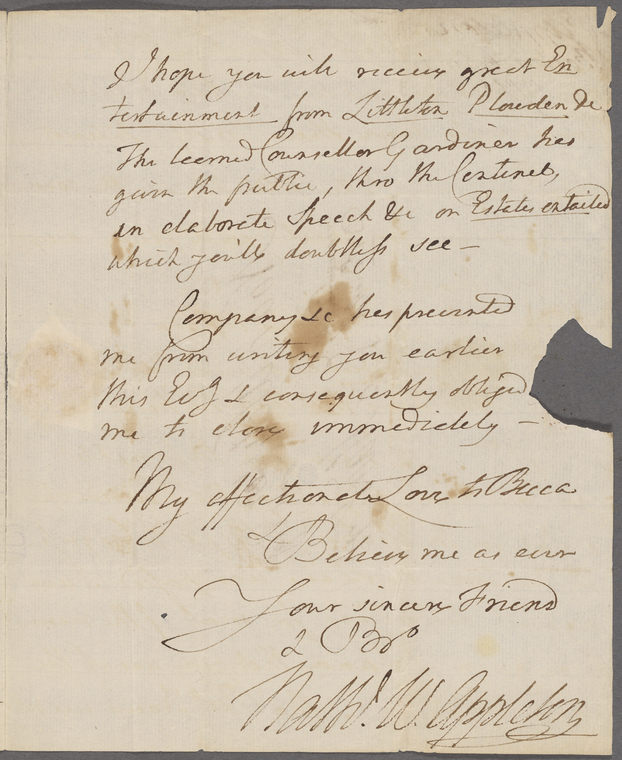 & I hope you will receive great En
tertainment from Littleton Plowden &c
The learned Counsellor Gardiner has
given the public, thro the Centinel,
an elaborate Speech &c on Estates entailed
which you'll doubtless see —
Company &c has prevented
me from writing you earlier
this Evg & consequently obliged
me to close immediately —
My affectionate Love to Becca
& Believe me as ever
Your sincere Friend
& Bro
Nathl. W. Appleton